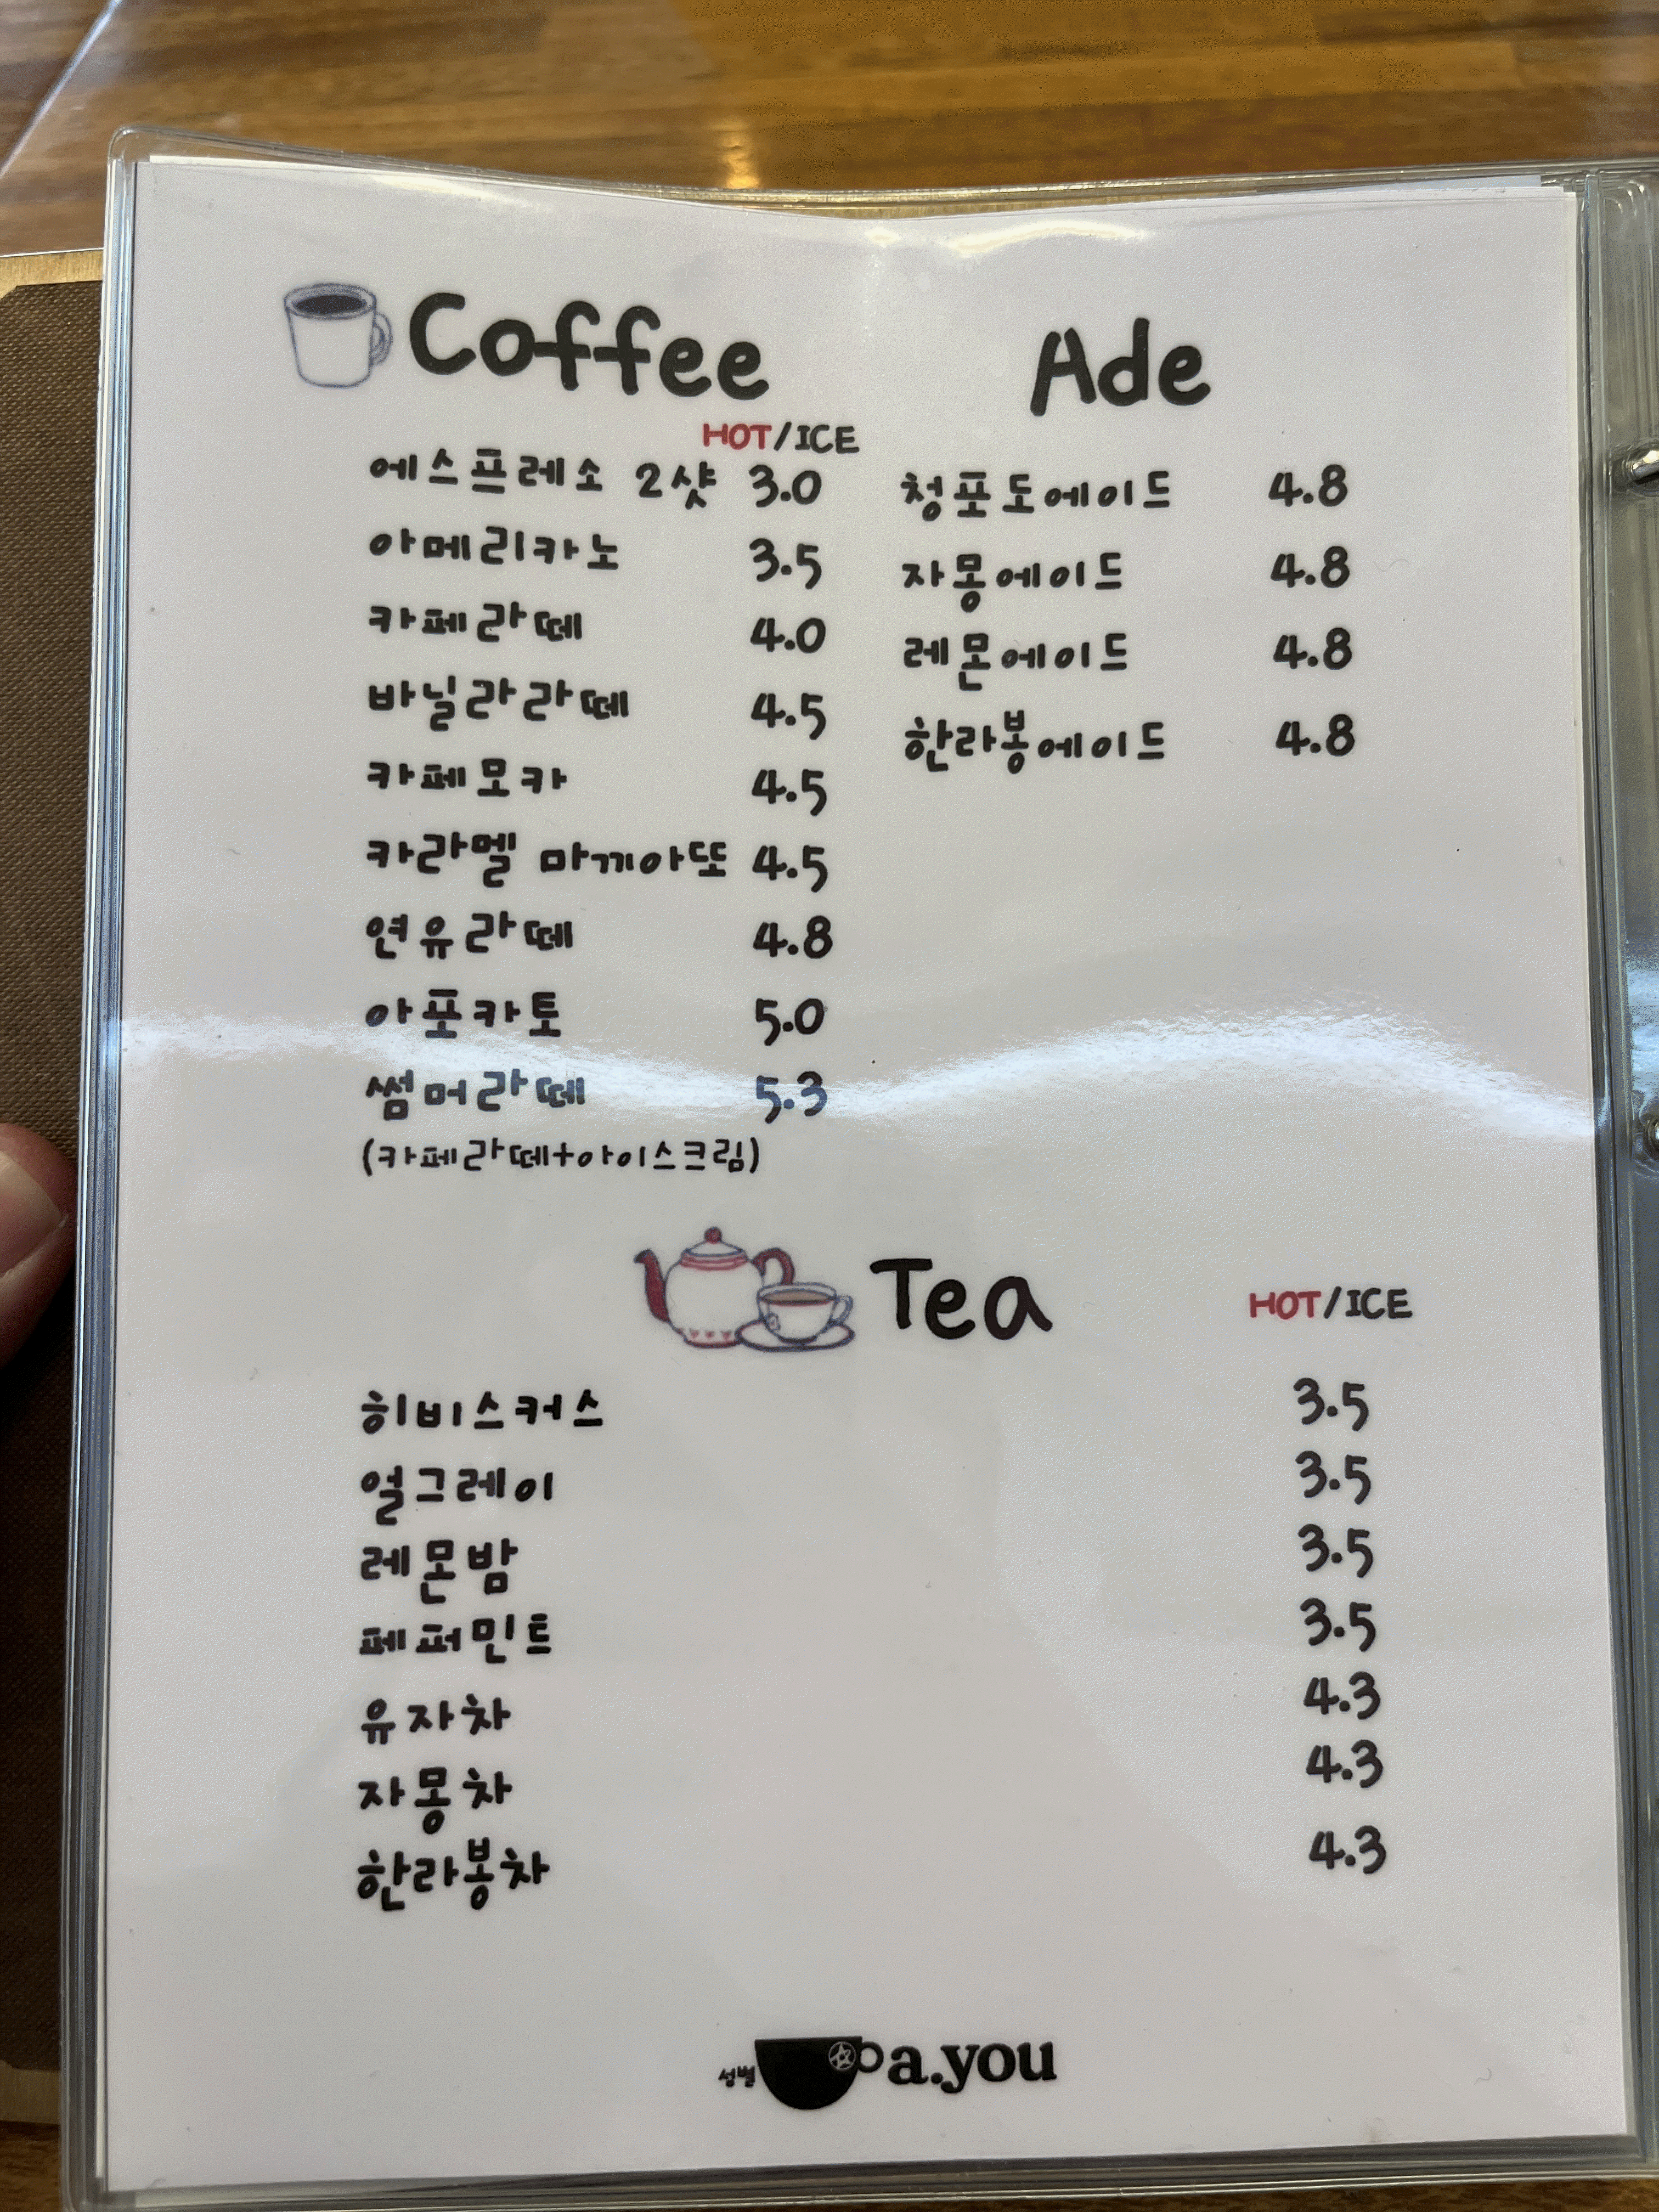 Coffee
HOT/ICE
에스프레소 2샷 3.0
아메리카노 3.5
카페라떼 4.0
바닐라라떼 4.5
카페모카 4.5
카라멜 마끼아또 4.5
연유라떼 4.8
아포카토 5.0
썸머라떼 5.3
(카페라떼+아이스크림)
Ade
청포도에이드 4.8
자몽에이드 4.8
레몬에이드 4.8
한라봉에이드 4.8
Tea
HOT/ICE
히비스커스 3.5
얼그레이 3.5
레몬밤 3.5
페퍼민트 3.5
유자차 4.3
자몽차 4.3
한라봉차 4.3
성별 a.you